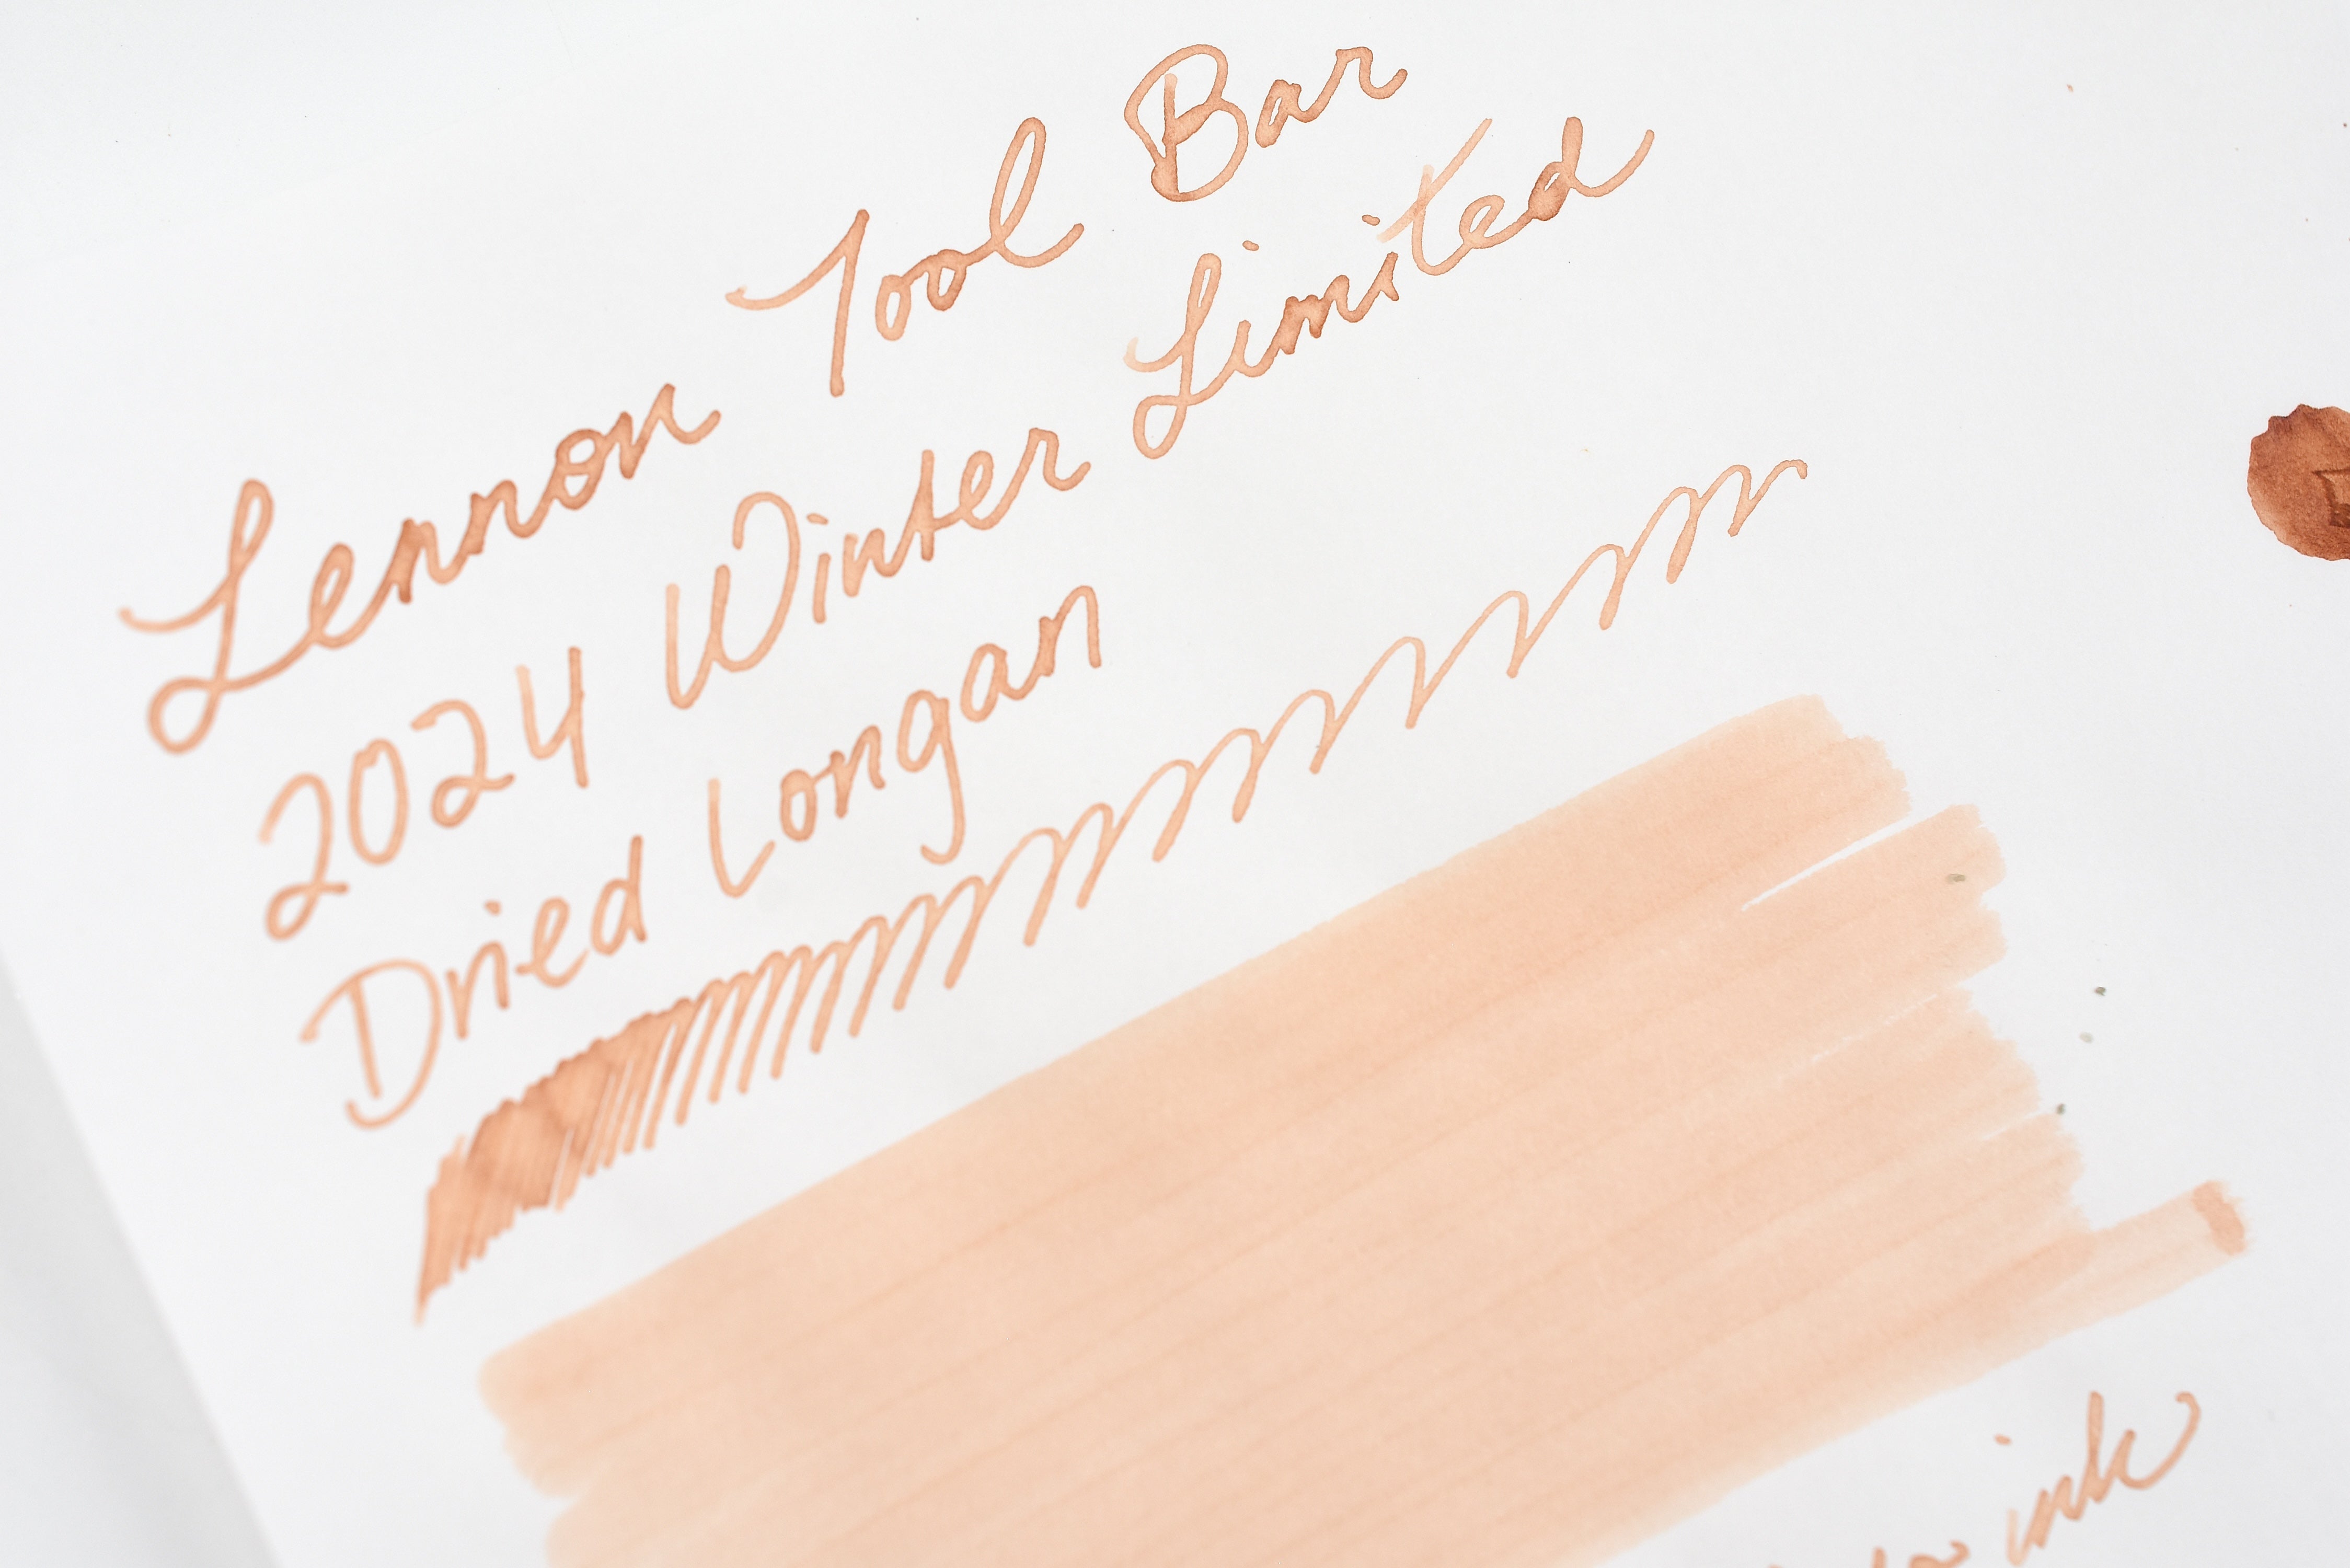 Lennon Tool Bar
2024 Winter Limited
Dried Longan
ink